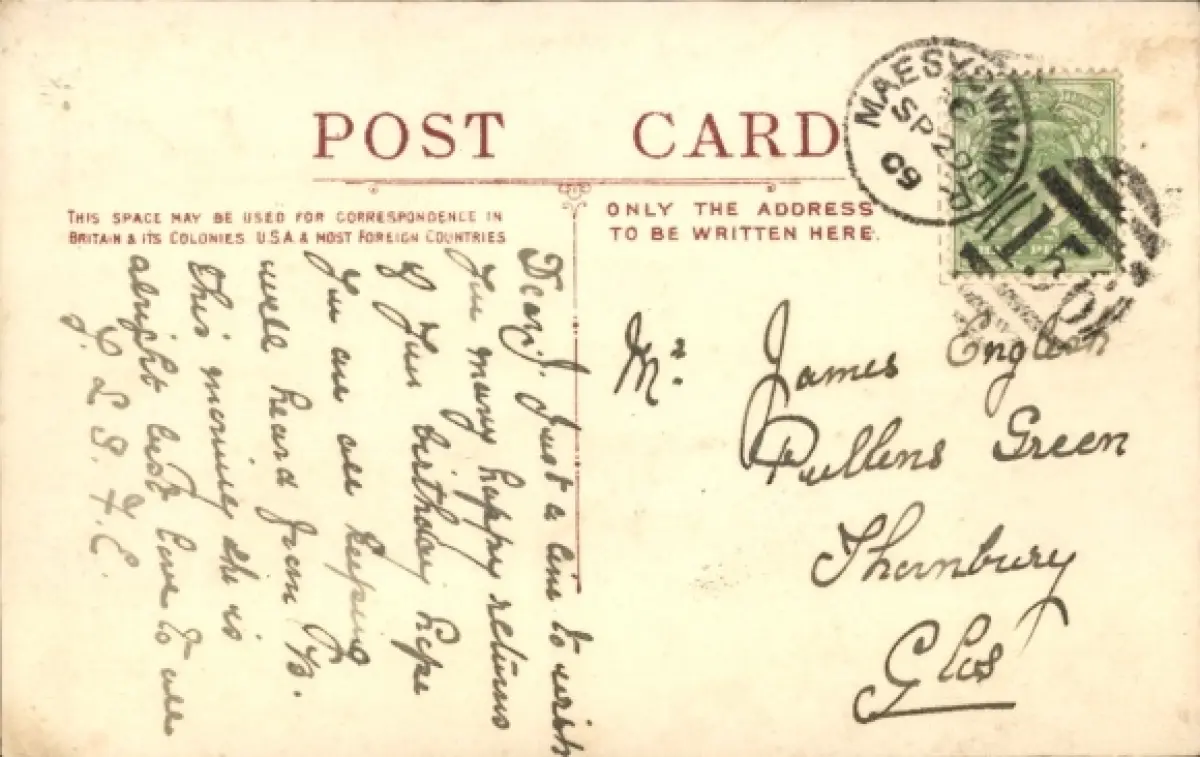 POST CARD
THIS SPACE MAY BE USED FOR CORRESPONDENCE IN
BRITAIN & ITS COLONIES U.S.A & MOST FOREIGN COUNTRIES
ONLY THE ADDRESS
TO BE WRITTEN HERE.
MAESYCWMMER
SP 20
09
Dear J. Just a line to wish
You many happy returns
of Your birthday hope
You are all keeping
well heard from B.
this morning she is
alright best love to all
Mr. James English
Pullens Green
Thornbury
Glos